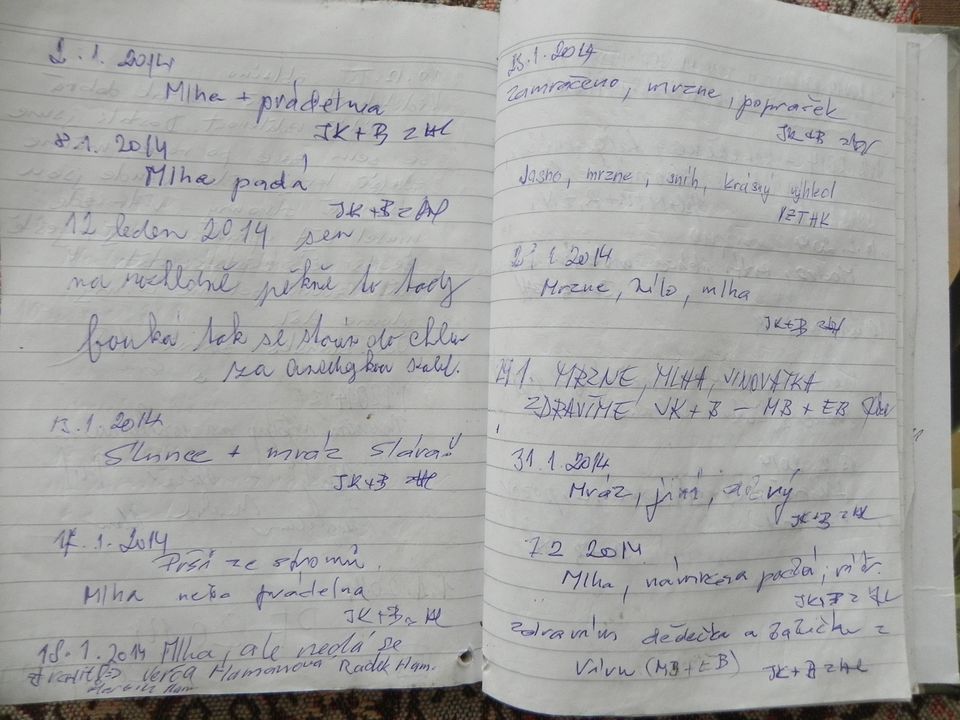 2.1.2014
Mlha + prádelna
JK+B z HK
8.1.2014
Mlha padá
JK+B z HK
12 leden 2014 sen
na rozhledně pěkně to tady
fouká tak se
za
13.1.2014
Slunce + mráz Sláva!!
JK+B z HK
17.1.2014
Prší ze stromů.
Mlha nebo prádelna
JK+B z HK
18.1.2014 Mlha, ale nedá se
ztratit => Verča Hamanová Radek Ham.
Ham.
23.1.2014
Zamračeno, mrzne, poprašek
JK+B z HK
Jasno, mrzne, sníh, krásný výhled
PZTHK
1.2014
Mrzne, bílo, mlha
JK+B z HK
29.1. MRZNE, MLHA, JINOVATKA
ZDRAVÍME JK+B – MB + EB
31.1.2014
Mráz, jiní,
JK+B z HK
7.2 2014
Mlha, námraza padá, vítr.
JK+B z HK
zdravím dědečka a babičku z
(MB+EB) JK+B z HK